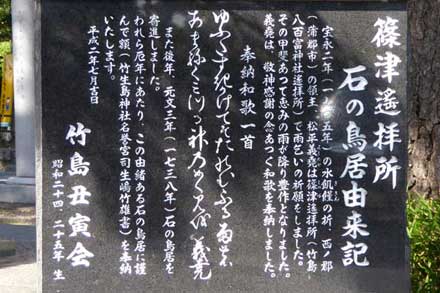 篠津遥拝所
石の鳥居由来記
宝永二年(一七〇五年)の水飢饉の折、西ノ郡
(蒲郡市)の領主、松平義堯は篠津遥拝所(竹島~
八百富神社遥拝所)で雨乞いの祈願をしました。
その甲斐あって恵みの雨が降り豊作となりました。
義堯は、敬神感謝の念あつく和歌を奉納しました。
奉納和歌一首
義堯
また後年、元文三年(一七三八年)石の鳥居を
寄進しました。
われら厄年にあたり、この由緒ある石の鳥居に謹
んで額(竹生島神社名誉宮司生嶋竹雄書)を奉納
いたします。
平成二年七月吉日
竹島丑寅会
昭和二十四、二十五年 生